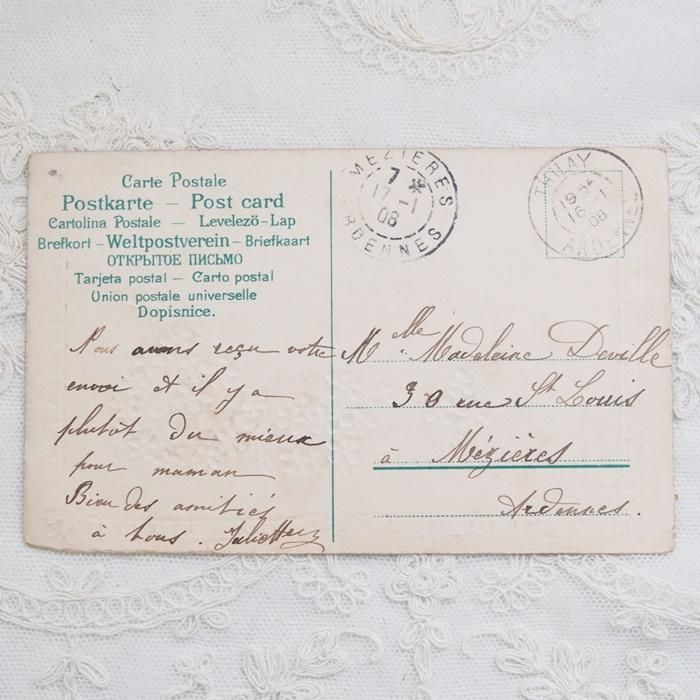 Carte Postale
Postkarte – Post card
Cartolina Postale – Levelezö-Lap
Brefkort – Weltpostverein – Briefkaart
ОТКРЫТОЕ ПИСЬМО
Tarjeta postal – Carto postal
Union postale universelle
Dopisnice.
MEZIERES
7 *
17 -1
08
ARDENNES
THILAY
16 -1
08
ARDENNES
Nous avons reçu votre
envoi et il y a
plutôt du mieux
pour maman
Bien des amitiés
à tous. Juliette
Mlle Madeleine Deville
30 rue St Louis
à Mézières
Ardennes.